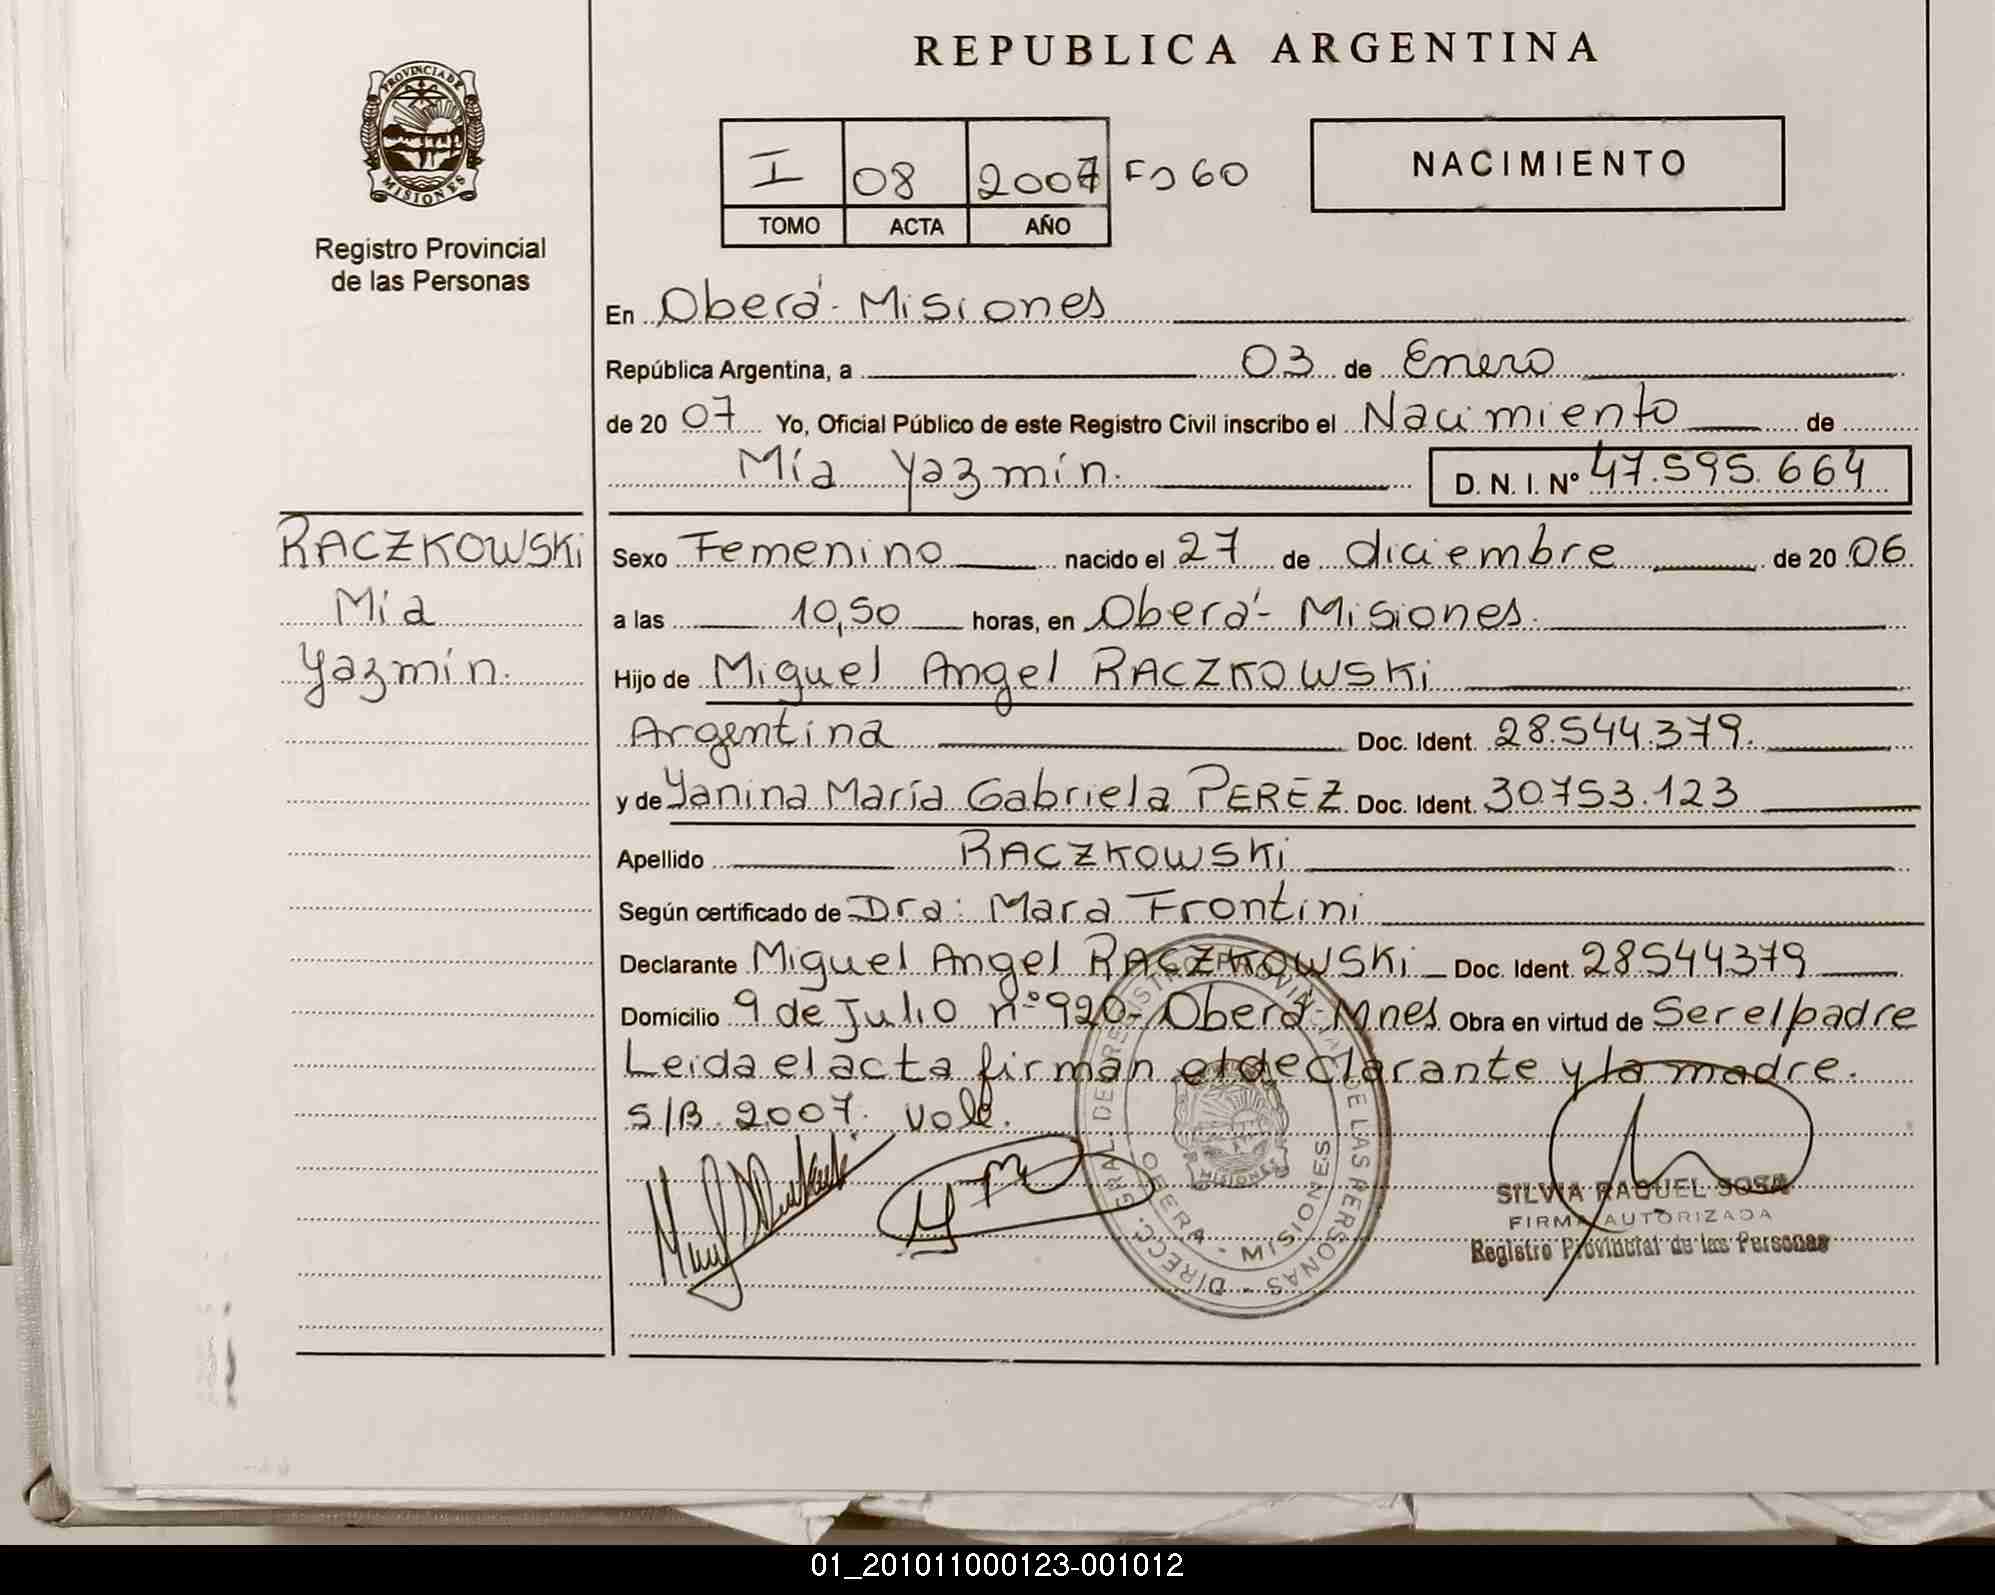 REPUBLICA ARGENTINA
PROVINCIA DE
MISIONES
Registro Provincial
de las Personas
I 08 2007 Fo 60
TOMO ACTA AÑO
NACIMIENTO
En Oberá - Misiones
República Argentina, a 03 de Enero
de 20 07 Yo, Oficial Público de este Registro Civil inscribo el Nacimiento de
Mía Yazmín. D. N. I. Nº 47.595.664
RACZKOWSKi
Mía
Yazmín.
Sexo Femenino nacido el 27 de diciembre de 20 06
a las 10,50 horas, en Oberá - Misiones.
Hijo de Miguel Angel RACZKOWSKi
Argentina Doc. Ident. 28.544.379.
y de Yanina María Gabriela PEREZ Doc. Ident. 30.753.123
Apellido RACZKOWSKi
Según certificado de Dra: Mara Frontini
Declarante Miguel Angel RACZKOWSKi Doc. Ident. 28544379
Domicilio 9 de Julio nº 920 - Oberá - Mnes Obra en virtud de Ser el padre
Leida el acta firman el declarante y la madre.
S/B. 2007. Vale.
DIRECC. GRAL. DE REGISTRO PROVINCIAL DE LAS PERSONAS -
OBERA - MISIONES
MISIONES
SILVIA RAQUEL SOSA
FIRMA AUTORIZADA
Registro Provincial de las Personas
01_201011000123-001012